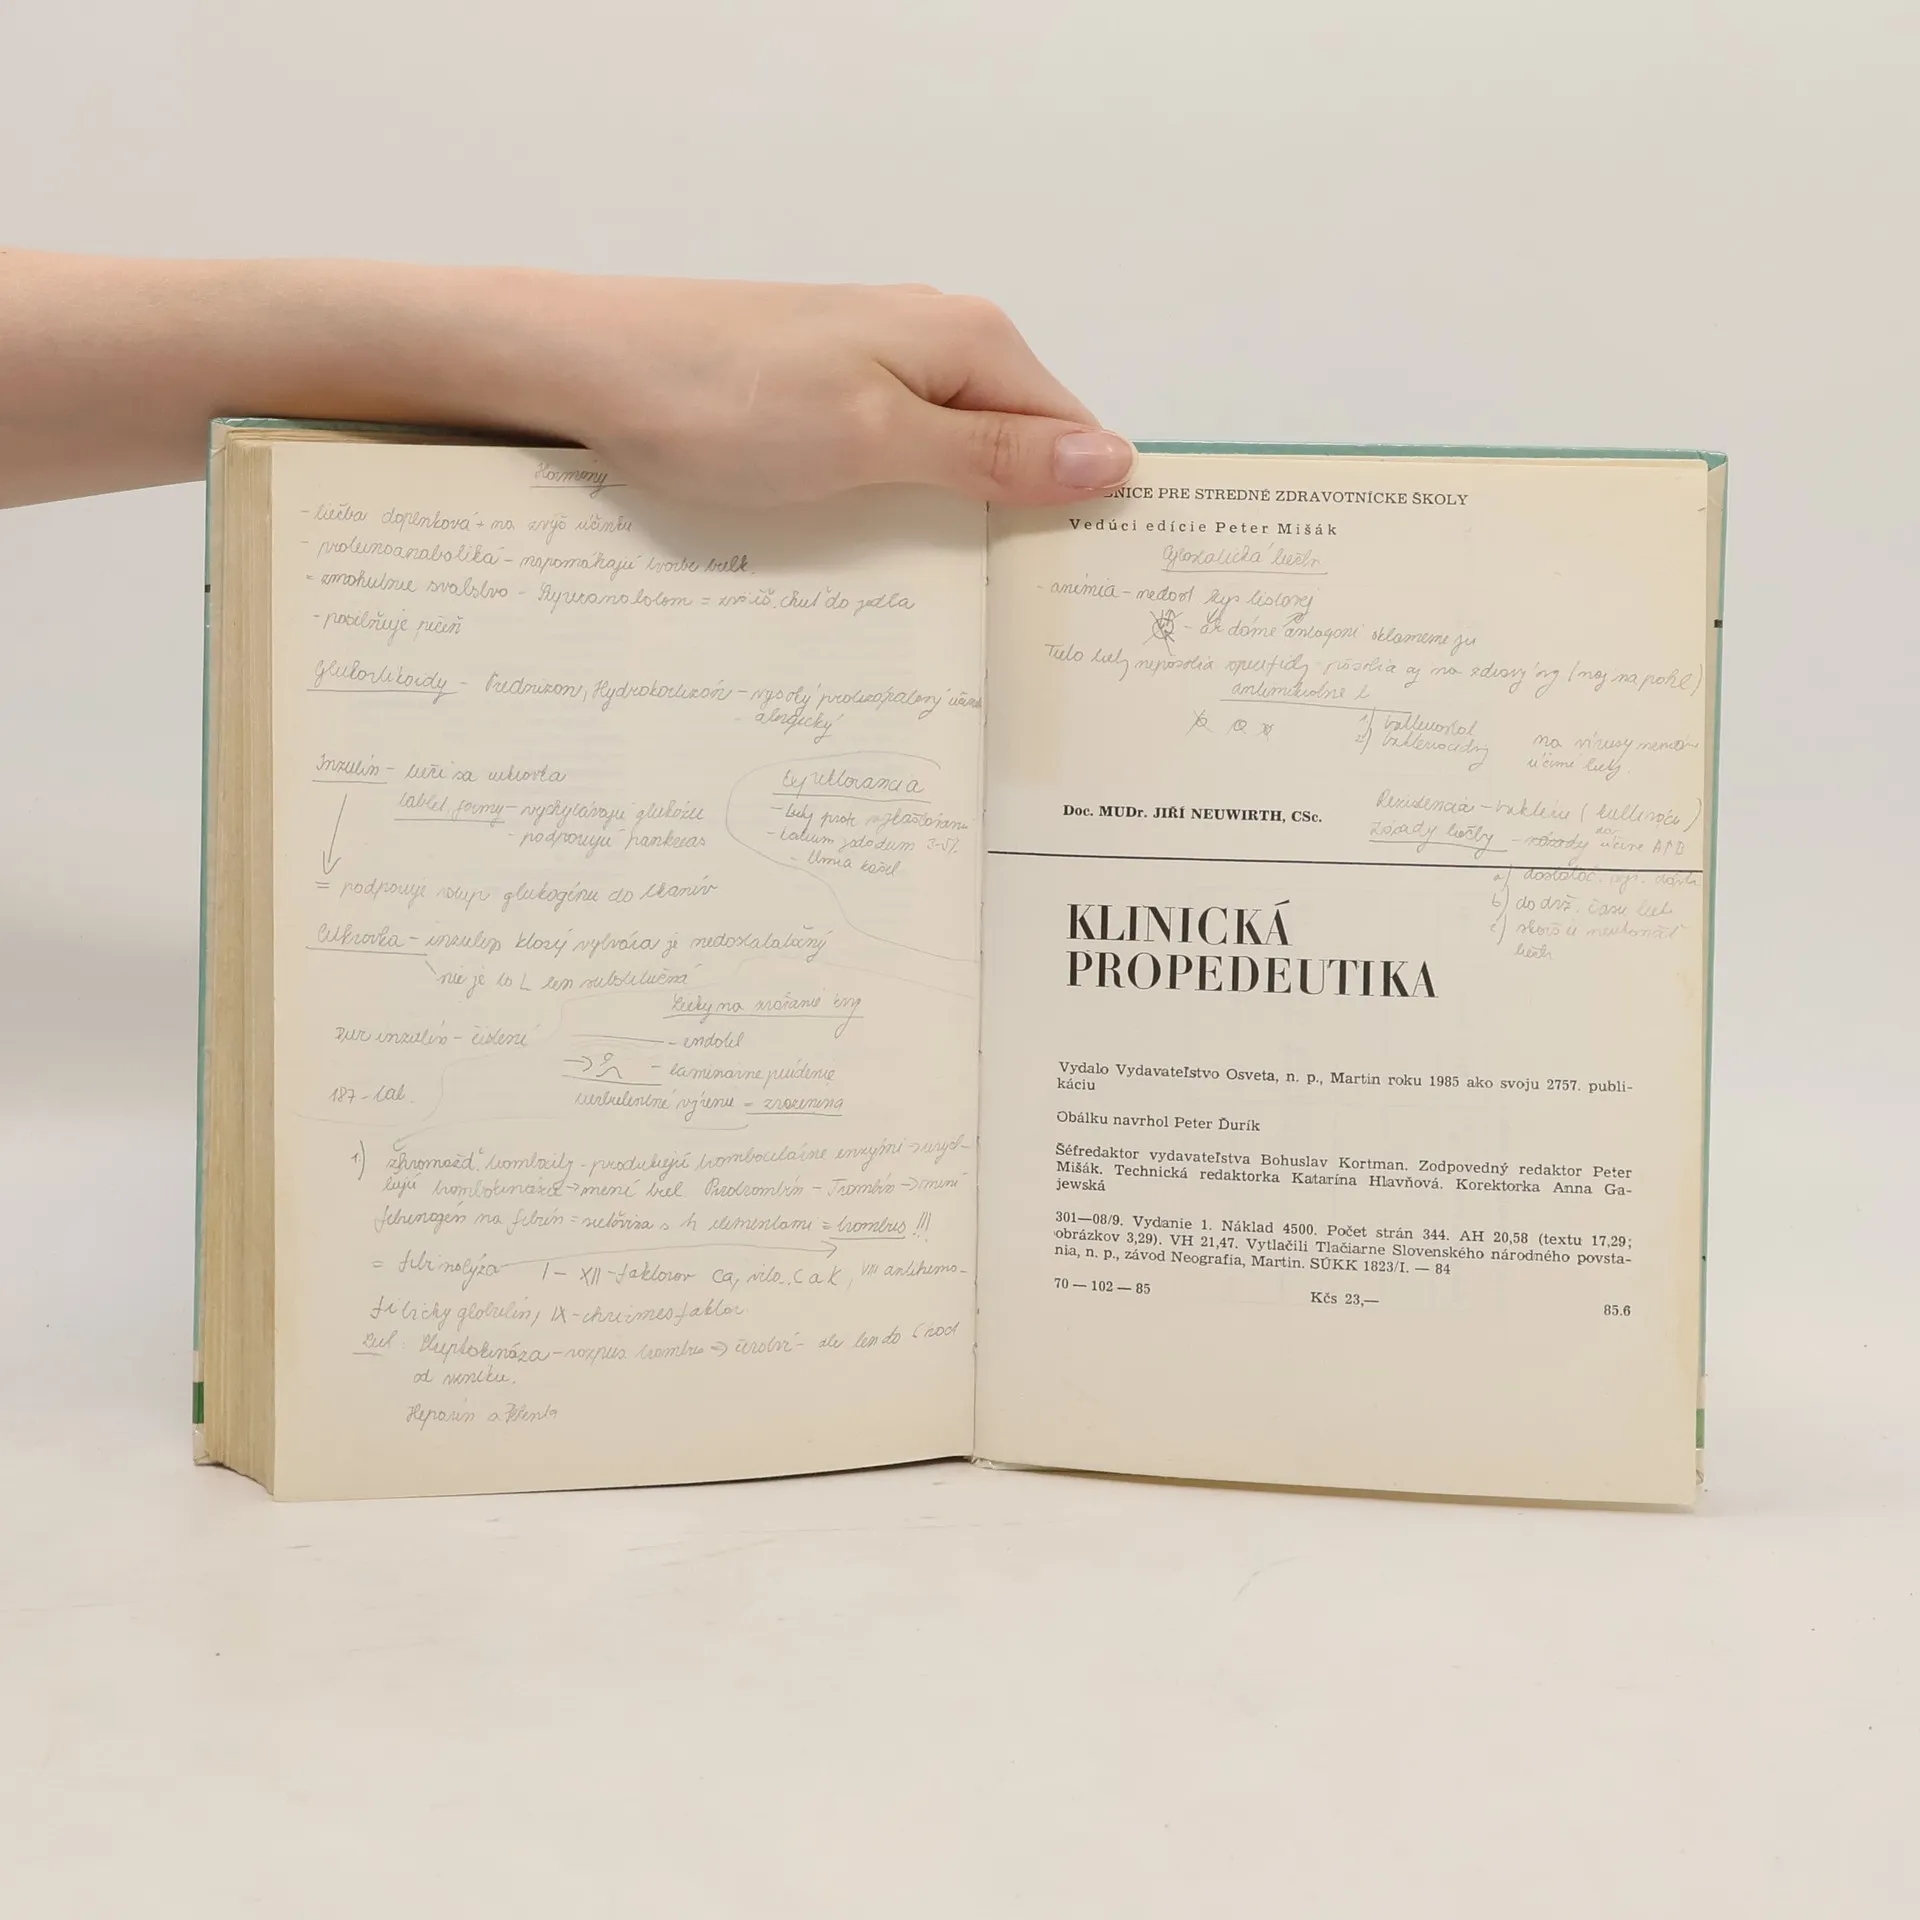 Hormóny
- liečba doplnková + na zvýš účinku
- proteinoanaboliká - napomáhajú tvorbe bielk.
= zmohutnie svalstvo - = zvýši chuť do jedla
- posilňuje pečeň
Glukortikoidy - Prednizon, Hydrokortizón - vysoký protizápalový účinok
- alergický
Inzulín - lieči sa cukrovka
tablet. formy - vychytávajú glukózu
- podporujú pankreas
= podporuje vstup glukogénu do tkanív
Expektorancia
- Lieky proti
- kalium jodatum 3-5%
- tlmia kašel
Cukrovka - inzulin ktorý vytvára je nedostatatočný
nie je to L len substitučná
Lieky na zrážanie krv
Dur inzulín - čistení
- endotel
- laminárne prúdenie
187 - tab.
turbulentné výrenie = zrazenina
1.) zhromažď. trombocity - produkujú trombocitárne enzými → urých-
ľujú trombokinázu → mení biel. Protrombín - Trombín → mení
fibrinogén na fibrín = sieťovina s k elementami = trombus !!!
= fibrinolýza I - XII - faktorov Ca, vito. C a K, VIII antihemo-
filický globulín, IX - chrizmes faktor
Lieč: Streptokináza - rozpus. trombus → čerství - ale len do 6 hod
od vzniku.
Heparín a Pelenta
NICE PRE STREDNÉ ZDRAVOTNÍCKE ŠKOLY
Vedúci edície Peter Mišák
Cytostatická liečba
- anémia - nedost kys listovej
- ak dáme antagoni sklameme ju
Tieto lieky nepôsobia specificky pôsobia aj na zdravý org (naj na pohl)
antimikrobne l
1) bakteriostat
2) baktériocídny
na vírusy nemá
účine lieky.
Rezistencia - baktériu (kultiváciu)
Zásady liečby - účine ATB
a) dostatoč. vys. dávk
b) dodrž. času liek
c) skoršie neukončiť
liečb
Doc. MUDr. JIŘÍ NEUWIRTH, CSc.
KLINICKÁ
PROPEDEUTIKA
Vydalo Vydavateľstvo Osveta, n. p., Martin roku 1985 ako svoju 2757. publi-
káciu
Obálku navrhol Peter Ďurík
Šéfredaktor vydavateľstva Bohuslav Kortman. Zodpovedný redaktor Peter
Mišák. Technická redaktorka Katarína Hlavňová. Korektorka Anna Ga-
jewská
301—08/9. Vydanie 1. Náklad 4500. Počet strán 344. AH 20,58 (textu 17,29;
obrázkov 3,29). VH 21,47. Vytlačili Tlačiarne Slovenského národného povsta-
nia, n. p., závod Neografia, Martin. SÚKK 1823/I. — 84
70 — 102 — 85
Kčs 23,—
85.6